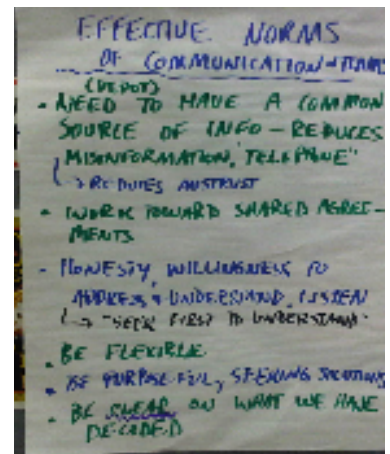 EFFECTIVE NORMS
OF COMMUNICATION - TEAMS
(DEPOT)
- NEED TO HAVE A COMMON
SOURCE OF INFO - REDUCES
MISINFORMATION, "TELEPHONE"
↳ REDUCES MISTRUST
• WORK TOWARD SHARED AGREE-
MENTS
- HONESTY, WILLINGNESS TO
ADDRESS & UNDERSTAND, LISTEN
↳ "SEEK FIRST TO UNDERSTAND"
• BE FLEXIBLE
• BE PURPOSE-FUL, SEEKING SOLUTIONS
• BE CLEAR ON WHAT WE HAVE
DECIDED